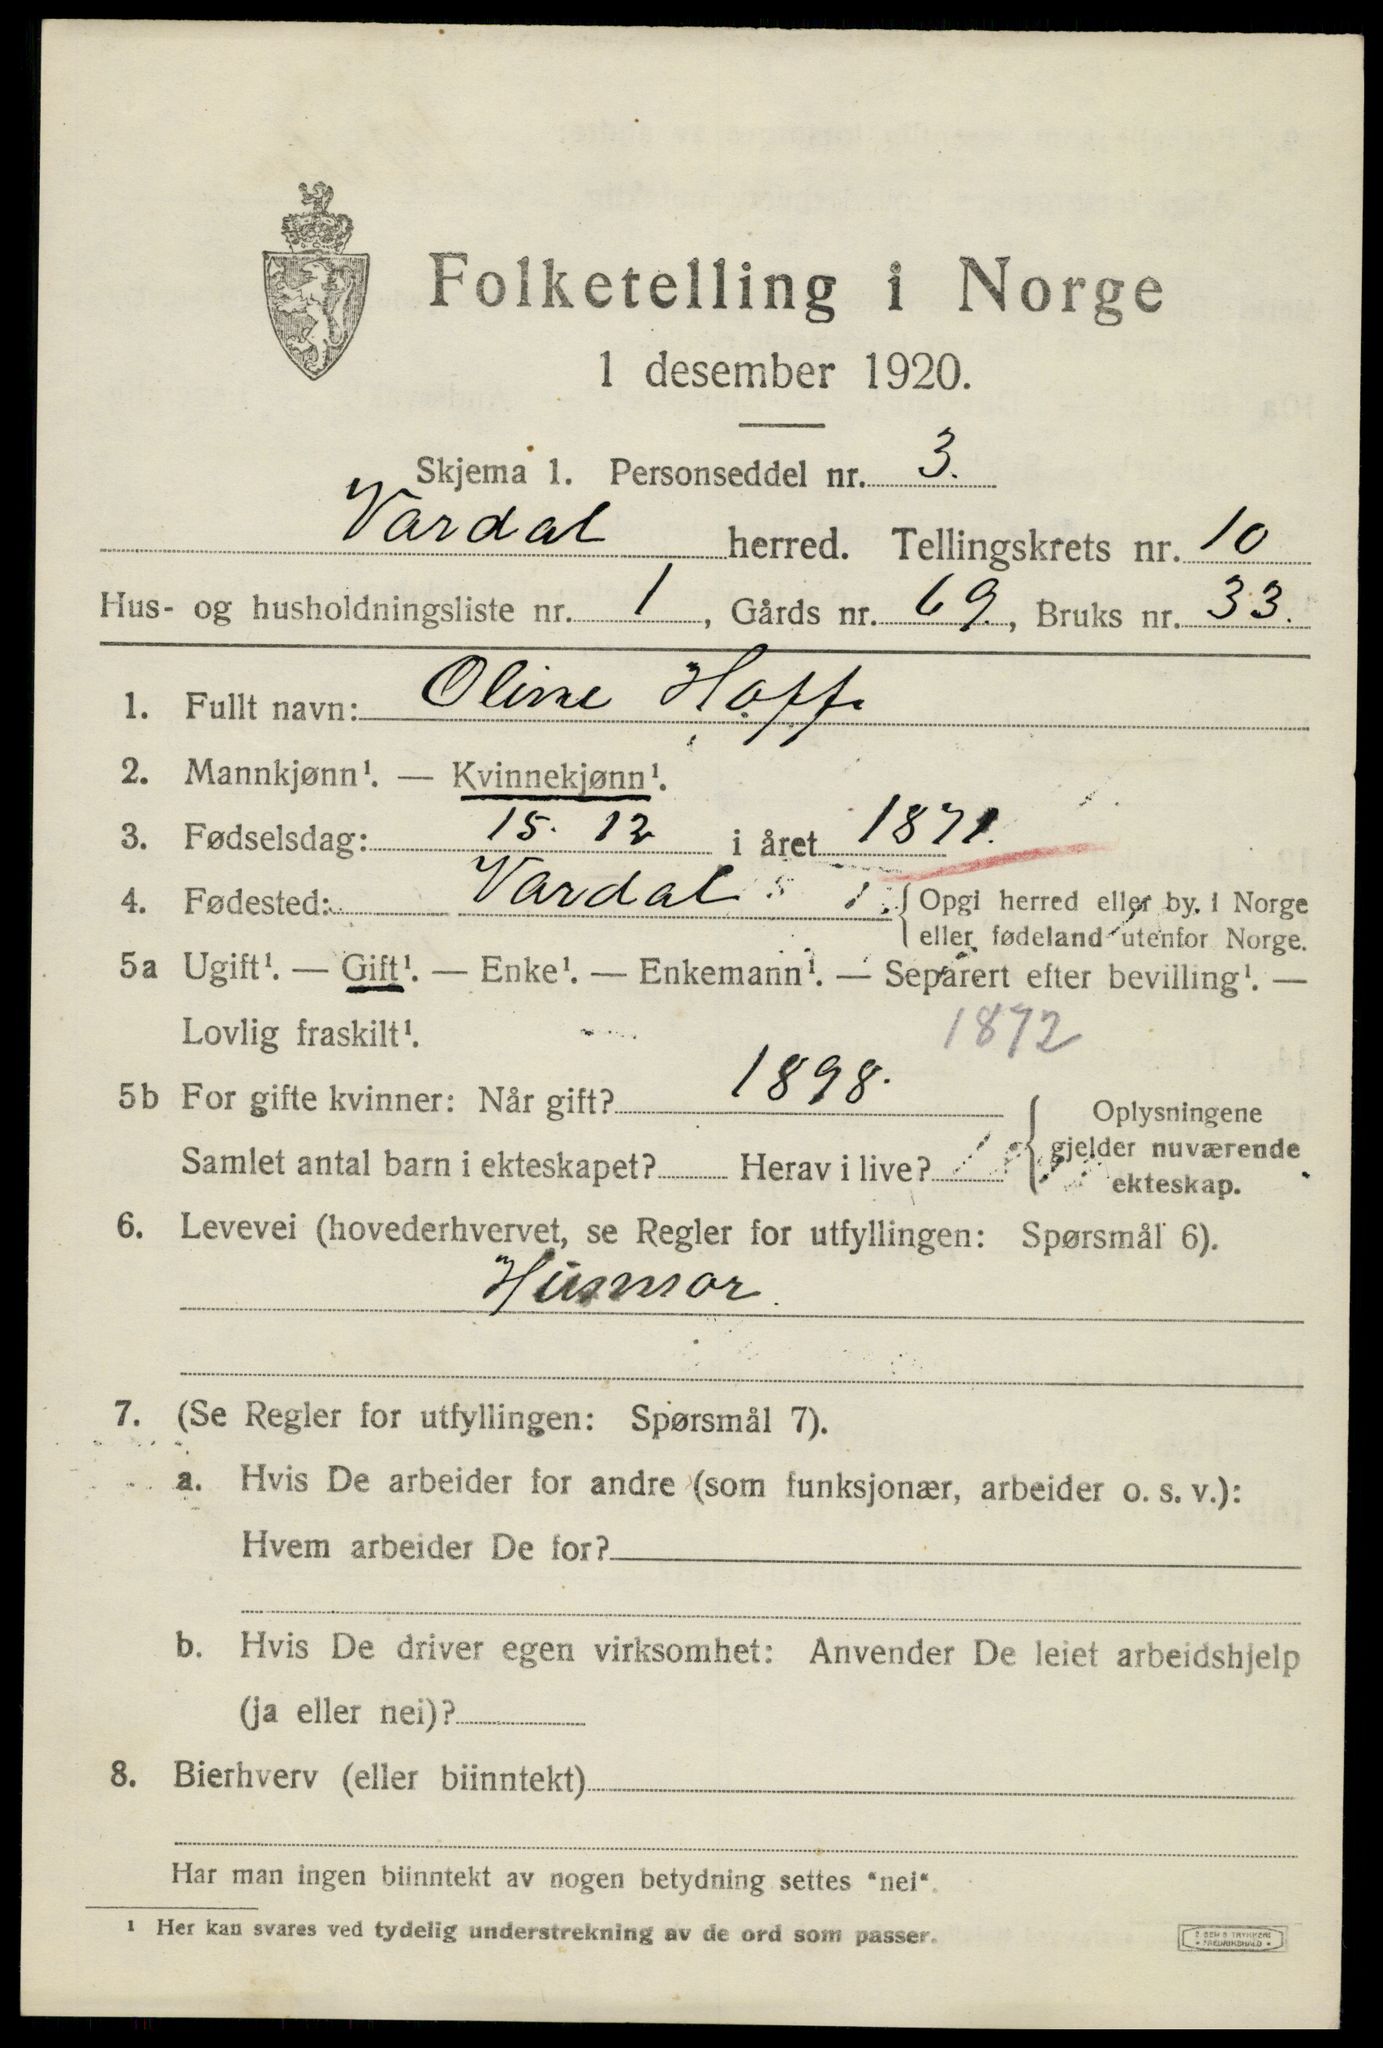 Folketelling i Norge
1 desember 1920.
Skjema 1. Personseddel nr. 3.
Vardal herred. Tellingskrets nr. 10
Hus- og husholdningsliste nr. 1, Gårds nr. 69., Bruks nr. 33.
1. Fullt navn: Oline Hoff.
2. Mannkjønn¹. — Kvinnekjønn¹.
3. Fødselsdag: 15. 12 i året 1871.
4. Fødested: Vardal {Opgi herred eller by, i Norge
eller fødeland utenfor Norge.
5a Ugift¹. — Gift¹. — Enke¹. — Enkemann¹. — Separert efter bevilling¹. —
Lovlig fraskilt¹.
1872
5b For gifte kvinner: Når gift? 1898.
Samlet antal barn i ekteskapet? Herav i live?
{Oplysningene
gjelder nuværende
ekteskap.
6. Levevei (hovederhvervet, se Regler for utfyllingen: Spørsmål 6).
Husmor.
7. (Se Regler for utfyllingen: Spørsmål 7).
a. Hvis De arbeider for andre (som funksjonær, arbeider o. s. v.):
Hvem arbeider De for?
b. Hvis De driver egen virksomhet: Anvender De leiet arbeidshjelp
(ja eller nei)?
8. Bierhverv (eller biinntekt)
Har man ingen biinntekt av nogen betydning settes "nei".
¹ Her kan svares ved tydelig understrekning av de ord som passer.